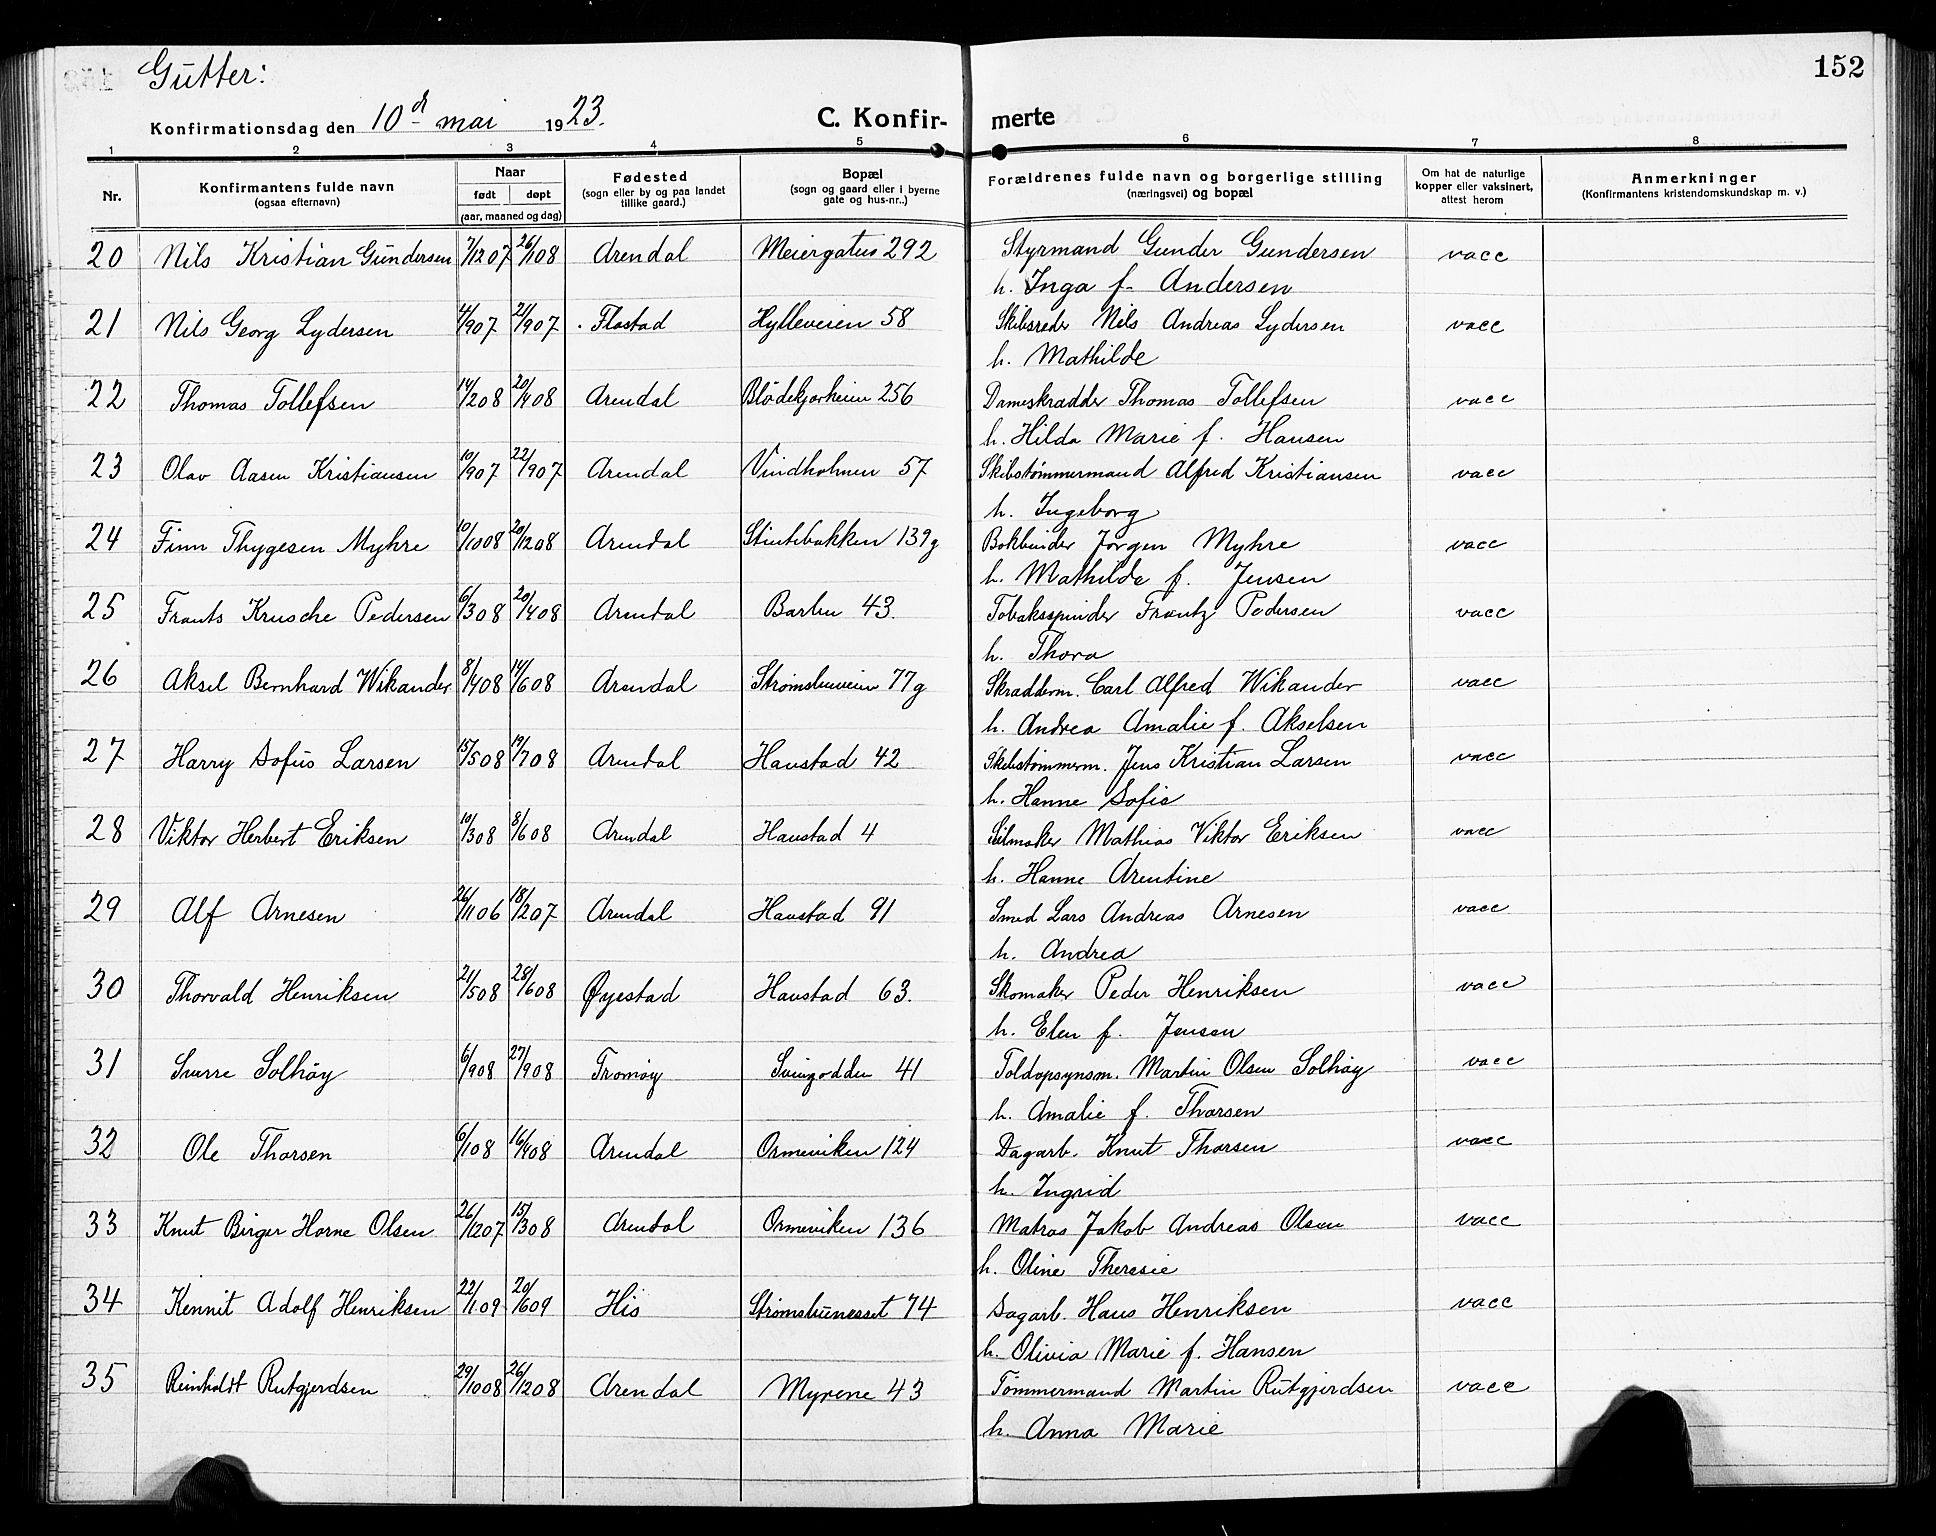 Gutter:
152
Konfirmationsdag den 10d mai 1923.
C. Konfirmerte
1 2 3 4 5 6 7 8
Nr.
Konfirmantens fulde navn
(ogsaa efternavn)
Naar
født døpt
(aar, maaned og dag)
Fødested
(sogn eller by og paa landet
tillike gaard.)
Bopæl
(sogn og gaard eller i byerne
gate og hus-nr..)
Forældrenes fulde navn og borgerlige stilling
(næringsvei) og bopæl
Om hat de naturlige
kopper eller vaksinert,
attest herom
Anmerkninger
(Konfirmantens kristendomskundskap m. v.)
20 Nils Kristian Gundersen 7/1207 26/108 Arendal Meiergaten 292 Styrmand Gunder Gundersen vacc
h. Inga f. Andersen
21 Nils Georg Lydersen 4/907 21/907 Flostad Hylleveien 58 Skibsreder Nils Andreas Lydersen vacc
h. Mathilde
22 Thomas Tollefsen 14/208 20/408 Arendal Blödekjærheien 256 Dameskrædder Thomas Tollefsen vacc
h. Hilda Marie f. Hansen
23 Olav Aasen Kristiansen 10/907 22/907 Arendal Vindholmen 57 Skibstømmermand Alfred Kristiansen vacc
h. Ingeborg
24 Finn Thygesen Myhre 10/1008 20/1208 Arendal Stintebakken 139g Bokbinder Jørgen Myhre vacc
h. Mathilde f. Jensen
25 Frants Krusche Pedersen 6/308 20/408 Arendal Barbu 43. Tobaksspinder Frantz Pedersen vacc
h. Thora
26 Aksel Bernhard Wikander 8/408 14/608 Arendal Strømsbuveien 77g Skrædderm. Carl Alfred Wikander vacc
h. Andrea Amalie f. Akselsen
27 Harry Sofus Larsen 15/508 19/708 Arendal Havstad 42 Skibstømmerm. Jens Kristian Larsen vacc
h. Hanne Sofie
28 Viktor Herbert Eriksen 10/308 8/608 Arendal Havstad 4 Seilmaker Mathias Viktor Eriksen vacc
h. Hanne Arentine
29 Alf Arnesen 26/1106 18/207 Arendal Havstad 91 Smed Lars Andreas Arnesen vacc
h. Andrea
30 Thorvald Henriksen 21/508 28/608 Øyestad Havstad 63. Skomaker Peder Henriksen vacc
h. Elen f. Jensen
31 Sverre Solhöy 6/908 27/908 Tromöy Svingodden 41 Toldopsynsm. Martin Olsen Solhöy vacc
h. Amalie f. Thorsen
32 Ole Thorsen 6/108 16/408 Arendal Ormeviken 124 Dagarb. Knut Thorsen vacc
h. Ingrid
33 Knut Birger Horne Olsen 26/1207 15/308 Arendal Ormeviken 136 Matros Jakob Andreas Olsen vacc
h. Oline Theresie
34 Kennit Adolf Henriksen 22/109 20/609 His Strømsbunesset 74 Dagarb. Hans Henriksen vacc
h. Olivia Marie f. Hansen
35 Reinholdt Rutgjerdsen 29/1008 26/1208 Arendal Myrene 43 Tömmermand Martin Rutgjerdsen vacc
h. Anna Marie